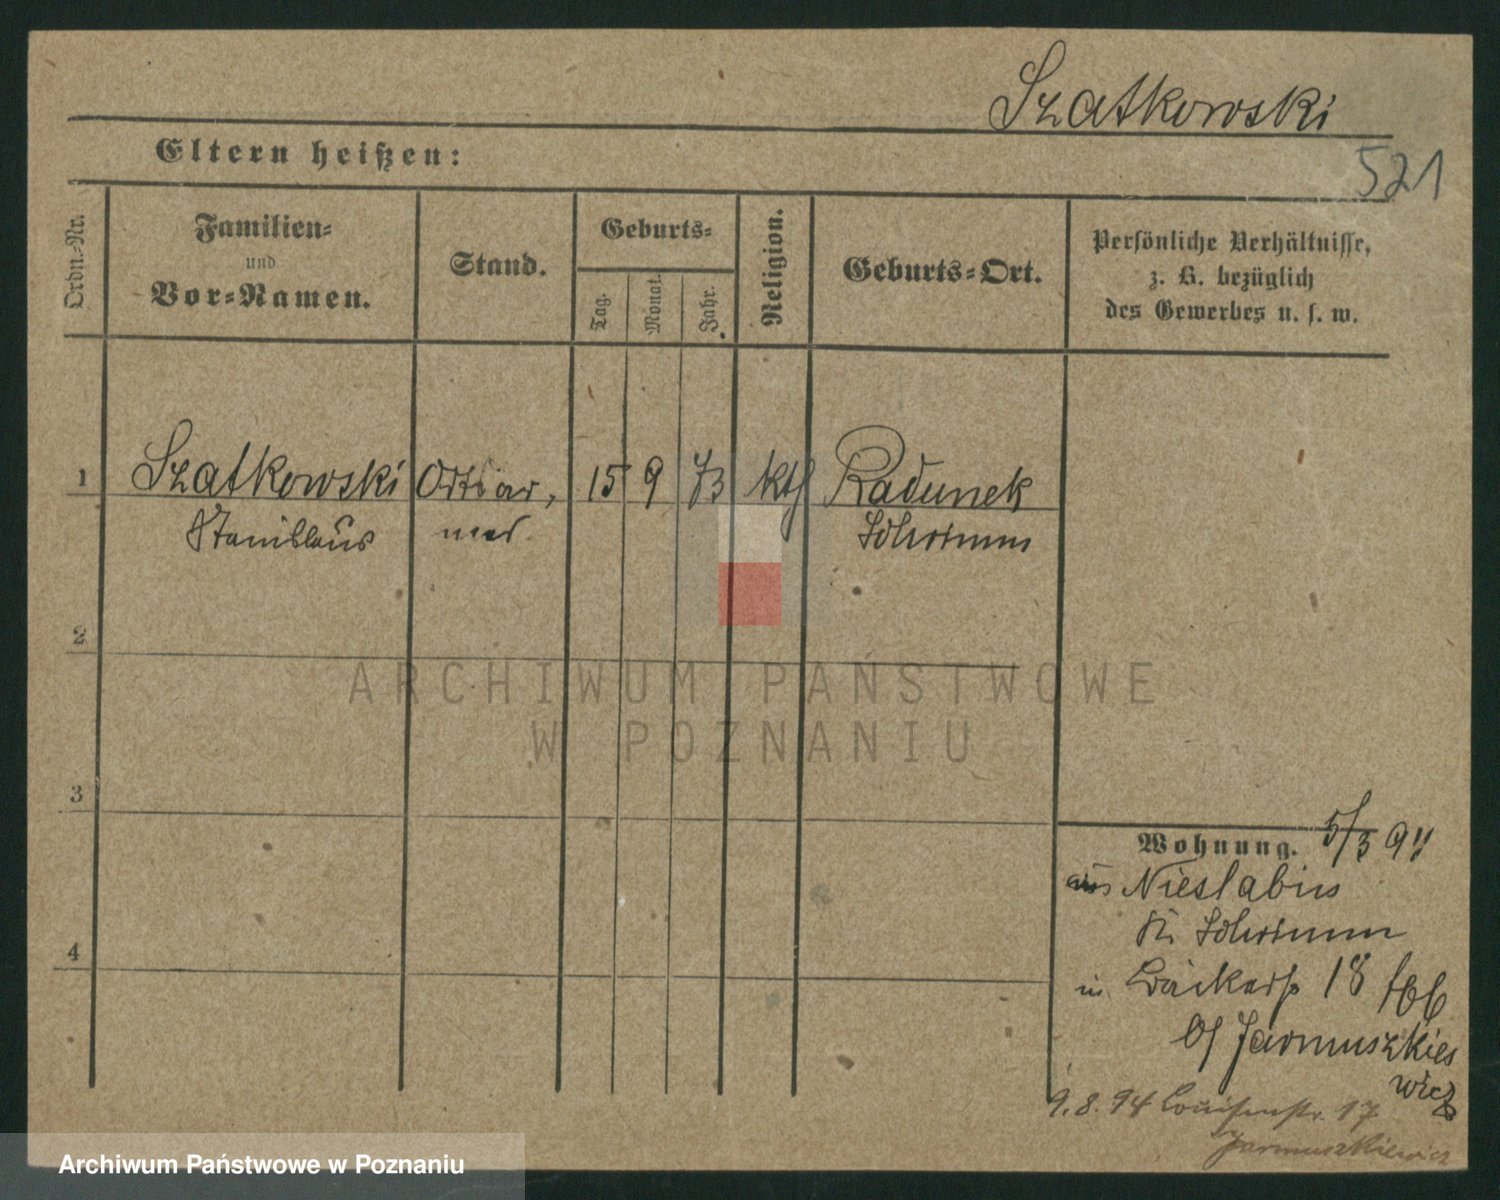 Szatkowski
Eltern heißen:
521
Ordn.-Nr.
Familien-
und
Vor-Namen.
Stand.
Geburts-
Tag.
Monat.
Jahr.
Religion.
Geburts-Ort.
Persönliche Verhältnisse,
z. B. bezüglich
des Gewerbes u. s. w.
1
Szatkowski
15
9
73
kth
Radunek
Stanislaus
Schrimm
2
ARCHIWUM PAŃSTWOWE
W POZNANIU
3
Wohnung. 5/3 94
aus Nieslabin
Kr. Schrimm
4
in Bäckerstr 18
bei Jarmuszkie
wicz
9.8.94 Louisenstr. 17
Jarmuszkiewicz
Archiwum Państwowe w Poznaniu